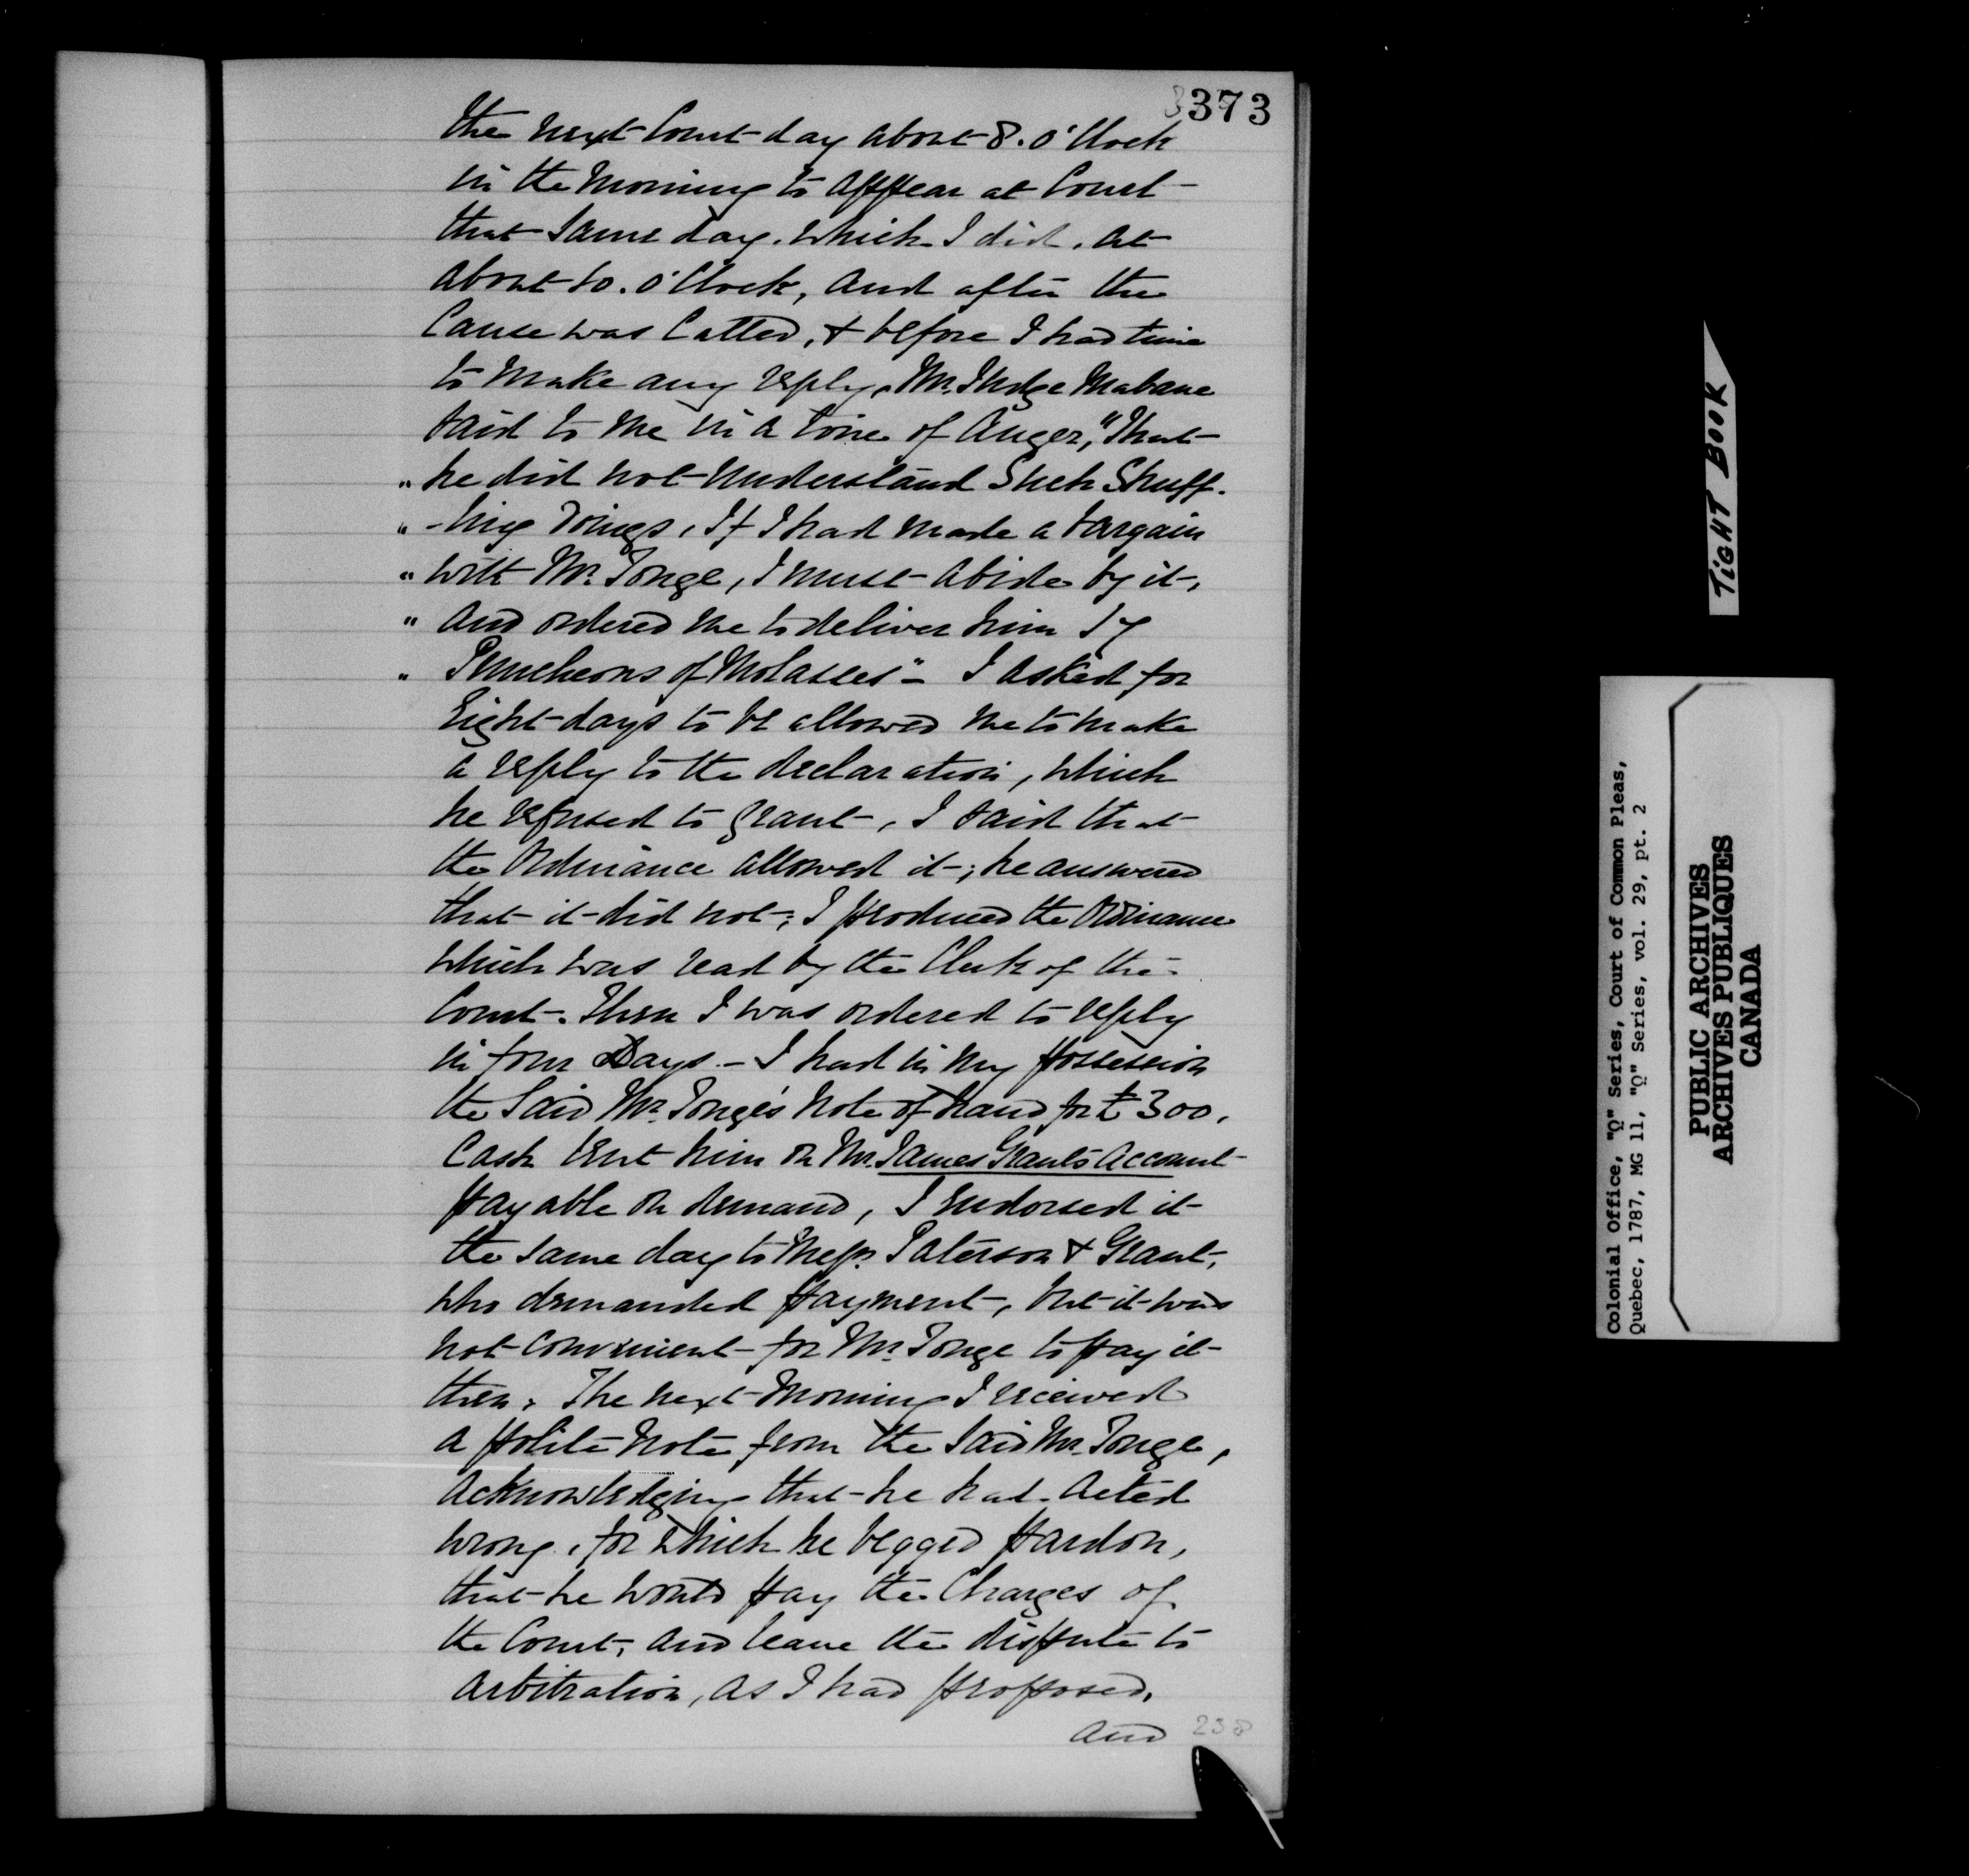 373
the next Court day about 8. o'Clock
in the Morning to appear at Court
that same day. which I did. at
about 10. o'Clock, and after the
Cause was Called, & before I had time
to make any reply, Mr. Judge Mabane
said to me in a tone of Anger, "That
" he did not understand Such Shuff-
" -ling doings, If I had made a bargain
" with Mr. Tonge, I must abide by it,
" and ordered me to deliver him 17
" Puncheons of Molasses" - I asked for
Eight days to be allowed me to make
a reply to the declaration, which
he refused to grant, I said that
the Ordinance allowed it; he answered
that it did not; I produced the Ordinance
which was read by the Clerk of the
Court. Then I was ordered to reply
in four Days. - I had in my possession
the Said Mr. Tonge's Note of hand for £300,
Cash lent him on Mr. James Grant's Account
payable on demand, I endorsed it
the same day to Messrs. Paterson & Grant,
who demanded payment, but it was
not convenient for Mr. Tonge to pay it
then. The next Morning I received
a polite Note from the Said Mr. Tonge,
Acknowledging that he had acted
wrong, for which he begged pardon,
that he would pay the Charges of
the Court, and leave the dispute to
Arbitration, as I had proposed,
and
238
TIGHT BOOK
Colonial Office, "Q" Series, Court of Common Pleas,
Quebec, 1787, MG 11, "Q" Series, vol. 29, pt. 2
PUBLIC ARCHIVES
ARCHIVES PUBLIQUES
CANADA